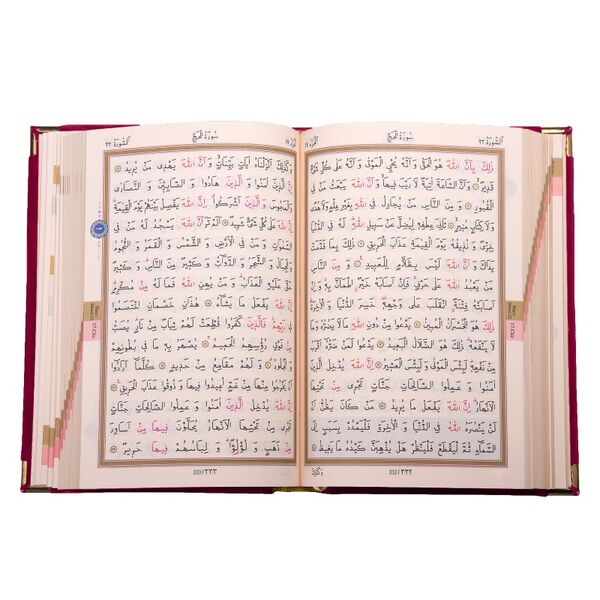 اَلسُّورَةُ ٢٢
سُورَةُ الْحَجِّ
ذٰلِكَ بِاَنَّ اللّٰهَ هُوَ الْحَقُّ وَاَنَّهُ يُحْيِ الْمَوْتٰى وَاَنَّهُ عَلٰى كُلِّ شَيْءٍ
قَدِيرٌ وَاَنَّ السَّاعَةَ اٰتِيَةٌ لَا رَيْبَ فِيهَا وَاَنَّ اللّٰهَ يَبْعَثُ مَنْ فِي
الْقُبُورِ وَ مِنَ النَّاسِ مَنْ يُجَادِلُ فِي اللّٰهِ بِغَيْرِ عِلْمٍ وَلَا هُدًى
وَلَا كِتَابٍ مُنِيرٍ ثَانِيَ عِطْفِهِ لِيُضِلَّ عَنْ سَبِيلِ اللّٰهِ لَهُ فِي الدُّنْيَا
خِزْيٌ وَ نُذِيقُهُ يَوْمَ الْقِيٰمَةِ عَذَابَ الْحَرِيقِ ذٰلِكَ بِمَا قَدَّمَتْ
يَدَاكَ وَاَنَّ اللّٰهَ لَيْسَ بِظَلَّامٍ لِلْعَبِيدِ وَ مِنَ النَّاسِ
مَنْ يَعْبُدُ اللّٰهَ عَلٰى حَرْفٍ فَاِنْ اَصَابَهُ خَيْرٌ اطْمَاَنَّ بِهِ وَاِنْ
اَصَابَتْهُ فِتْنَةٌ انْقَلَبَ عَلٰى وَجْهِهِ خَسِرَ الدُّنْيَا وَالْاٰخِرَةَ
ذٰلِكَ هُوَ الْخُسْرَانُ الْمُبِينُ يَدْعُوا مِنْ دُونِ اللّٰهِ مَا لَا يَضُرُّهُ وَمَا
لَا يَنْفَعُهُ ذٰلِكَ هُوَ الضَّلَالُ الْبَعِيدُ يَدْعُوا لَمَنْ ضَرُّهُ اَقْرَبُ
مِنْ نَفْعِهِ لَبِئْسَ الْمَوْلٰى وَلَبِئْسَ الْعَشِيرُ اِنَّ اللّٰهَ يُدْخِلُ الَّذِينَ
اٰمَنُوا وَ عَمِلُوا الصَّالِحَاتِ جَنَّاتٍ تَجْرِي مِنْ تَحْتِهَا
الْاَنْهَارُ اِنَّ اللّٰهَ يَفْعَلُ مَا يُرِيدُ مَنْ كَانَ يَظُنُّ اَنْ
لَنْ يَنْصُرَهُ اللّٰهُ فِي الدُّنْيَا وَالْاٰخِرَةِ فَلْيَمْدُدْ بِسَبَبٍ اِلَى
السَّمَاءِ ثُمَّ لْيَقْطَعْ فَلْيَنْظُرْ هَلْ يُذْهِبَنَّ كَيْدُهُ مَا يَغِيظُ
332/٣٣٢
سُورَةُ الْحَجِّ
اَلسُّورَةُ ٢٢
وَكَذٰلِكَ اَنْزَلْنَاهُ اٰيَاتٍ بَيِّنَاتٍ وَ اَنَّ اللّٰهَ يَهْدِي مَنْ يُرِيدُ
اِنَّ الَّذِينَ اٰمَنُوا وَ الَّذِينَ هَادُوا وَ الصَّابِئِينَ وَ النَّصَارٰى
وَالْمَجُوسَ وَ الَّذِينَ اَشْرَكُوا اِنَّ اللّٰهَ يَفْصِلُ بَيْنَهُمْ يَوْمَ الْقِيٰمَةِ
اِنَّ اللّٰهَ عَلٰى كُلِّ شَيْءٍ شَهِيدٌ اَلَمْ تَرَ اَنَّ اللّٰهَ يَسْجُدُ لَهُ مَنْ فِي
السَّمٰوَاتِ وَ مَنْ فِي الْاَرْضِ وَ الشَّمْسُ وَ الْقَمَرُ وَ النُّجُومُ
وَ الْجِبَالُ وَ الشَّجَرُ وَ الدَّوَابُّ وَ كَثِيرٌ مِنَ النَّاسِ وَ كَثِيرٌ
حَقَّ عَلَيْهِ الْعَذَابُ وَ مَنْ يُهِنِ اللّٰهُ فَمَا لَهُ مِنْ مُكْرِمٍ
اِنَّ اللّٰهَ يَفْعَلُ مَا يَشَاءُ هٰذَانِ خَصْمَانِ اخْتَصَمُوا
فِي رَبِّهِمْ فَالَّذِينَ كَفَرُوا قُطِّعَتْ لَهُمْ ثِيَابٌ مِنْ نَارٍ يُصَبُّ
مِنْ فَوْقِ رُؤُسِهِمُ الْحَمِيمُ يُصْهَرُ بِهِ مَا فِي بُطُونِهِمْ
وَالْجُلُودُ وَ لَهُمْ مَقَامِعُ مِنْ حَدِيدٍ كُلَّمَا اَرَادُوا
اَنْ يَخْرُجُوا مِنْهَا مِنْ غَمٍّ اُعِيدُوا فِيهَا وَ ذُوقُوا عَذَابَ الْحَرِيقِ
اِنَّ اللّٰهَ يُدْخِلُ الَّذِينَ اٰمَنُوا وَ عَمِلُوا الصَّالِحَاتِ جَنَّاتٍ
تَجْرِي مِنْ تَحْتِهَا الْاَنْهَارُ يُحَلَّوْنَ فِيهَا مِنْ اَسَاوِرَ
مِنْ ذَهَبٍ وَ لُؤْلُؤًا وَ لِبَاسُهُمْ فِيهَا حَرِيرٌ
333/٣٣٣